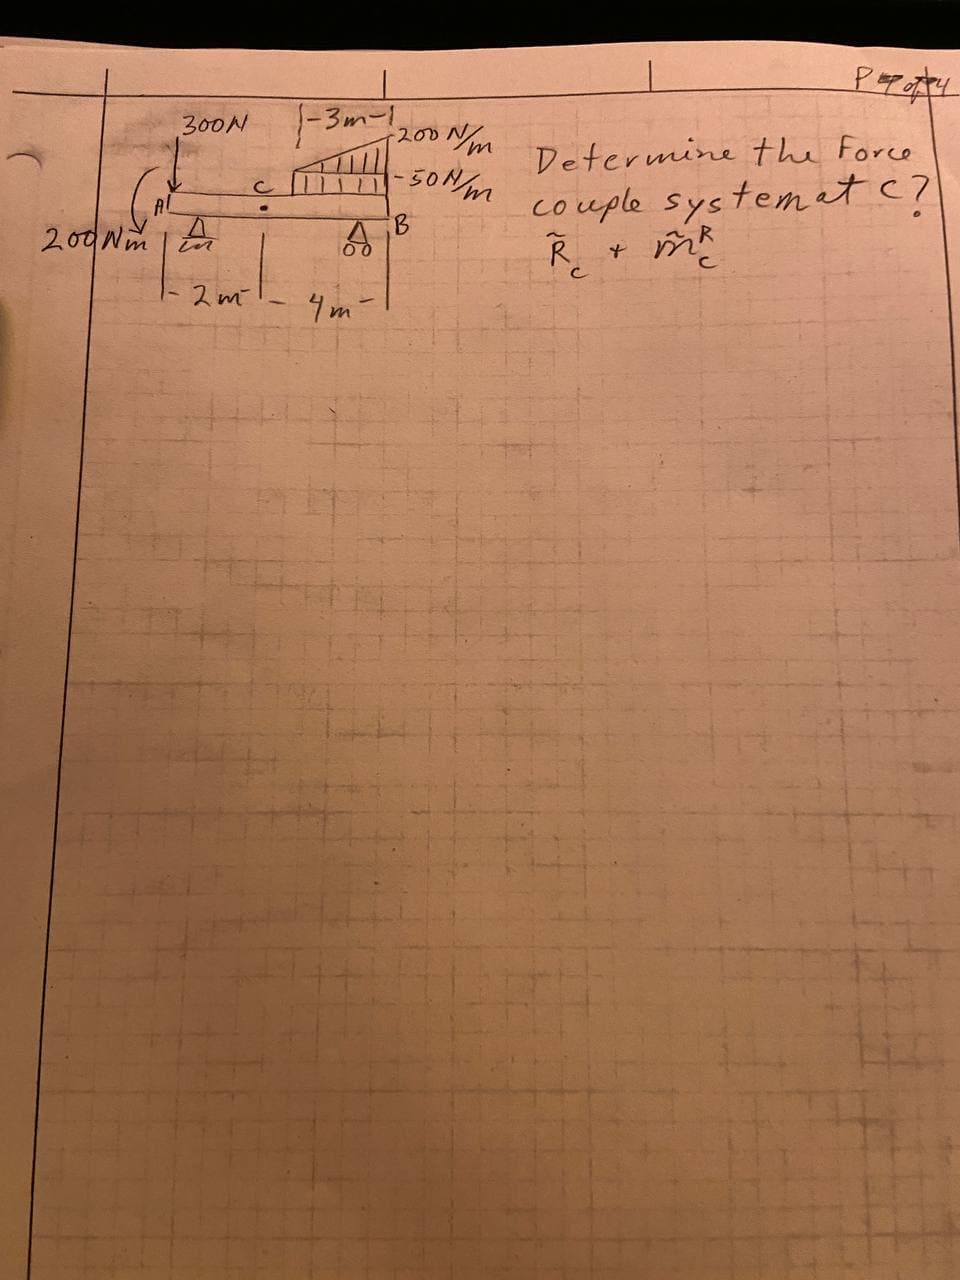 P 4 of 4
300N
|-3m-|
200 N/m
-50N/m
C
A
200 Nm
B
|- 2m -|- 4m -|
Determine the Force
couple system at C?
R̃c + m̃cR